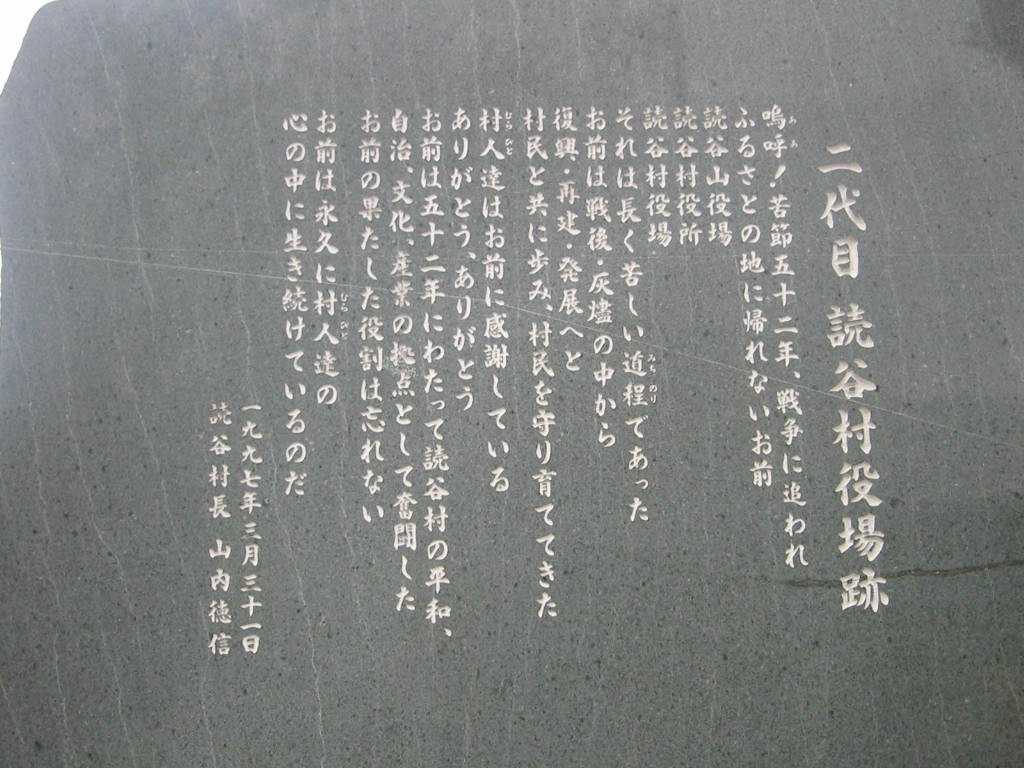 二代目 読谷村役場跡
嗚呼！苦節五十二年、戦争に追われ
ふるさとの地に帰れないお前
読谷山役場
読谷村役所
読谷村役場
それは長く苦しい道程であった
お前は戦後・灰燼の中から
復興・再建・発展へと
村民と共に歩み、村民を守り育ててきた
村人達はお前に感謝している
ありがとう、ありがとう
お前は五十二年にわたって読谷村の平和、
自治、文化、産業の拠点として奮闘した
お前の果たした役割は忘れない
お前は永久に村人達の
心の中に生き続けているのだ
一九九七年三月三十一日
読谷村長 山内徳信